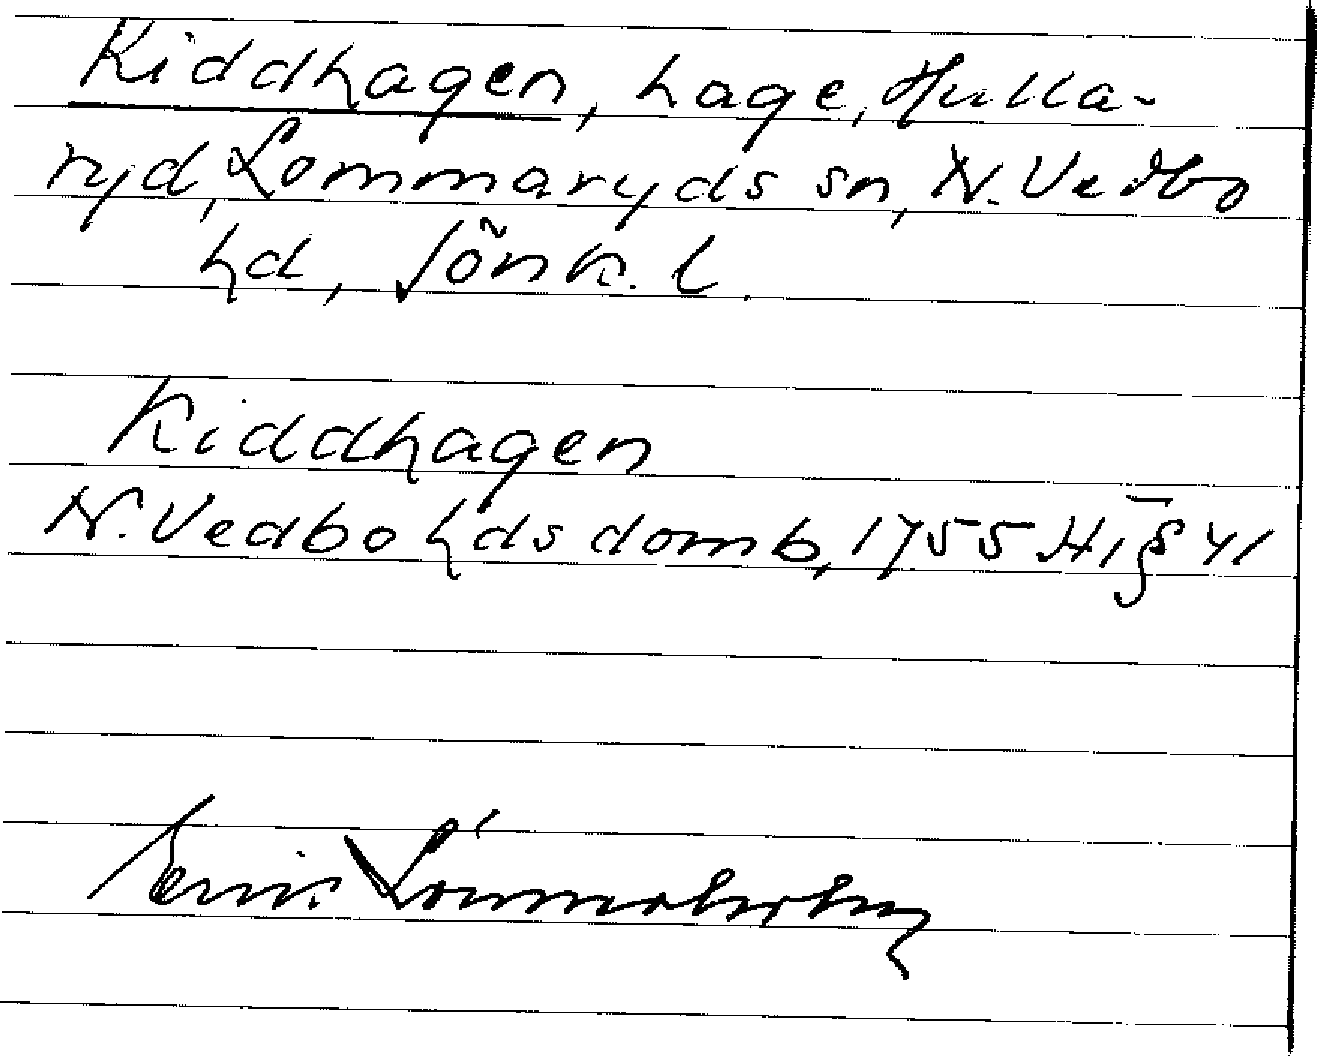 Kiddhagen, hage, Hulla-
ryd, Lommaryds sn, N. Vedbo
hd, Jönk. l.
Kiddhagen
N. Vedbo hds domb, 1755 Ht § 41